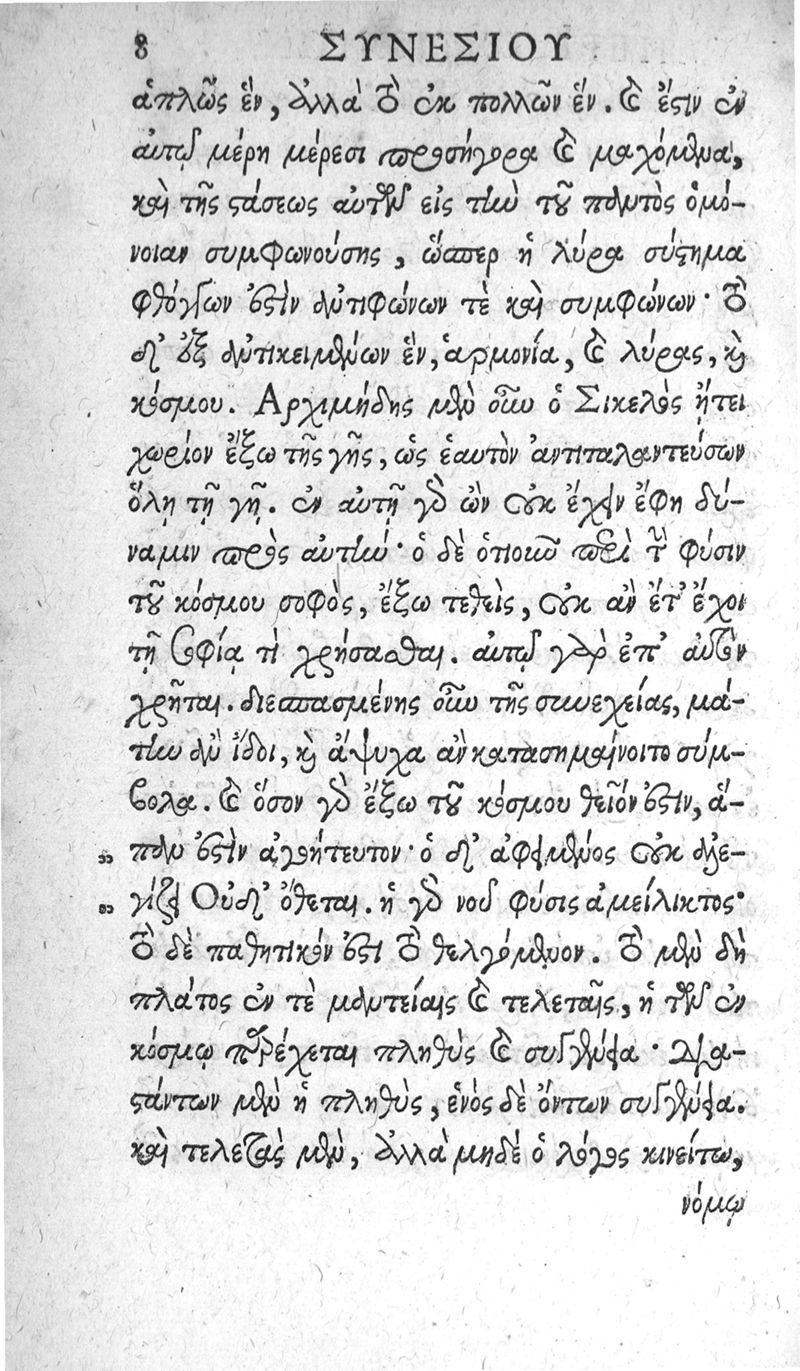 8 ΣΥΝΕΣΙΟΥ
ἁπλῶς ἓν, ἀλλὰ τὸ ἐκ πολλῶν ἕν. καὶ ἔστιν ἐν
αὐτῷ μέρη μέρεσι προσήγορα καὶ μαχόμενα,
καὶ τῆς στάσεως αὐτῶν εἰς τὴν τοῦ παντὸς ὁμό-
νοιαν συμφωνούσης, ὥσπερ ἡ λύρα σύστημα
φθόγγων ἐστὶν ἀντιφώνων τὲ καὶ συμφώνων· τὸ
δ' ἐξ ἀντικειμένων ἓν, ἁρμονία, καὶ λύρας, καὶ
κόσμου. Αρχιμήδης μὲν οὖν ὁ Σικελὸς ᾔτει
χωρίον ἔξω τῆς γῆς, ὡς ἑαυτὸν ἀντιταλαντεύσων
ὅλῃ τῇ γῇ. ἐν αὐτῇ γὰρ ὢν οὐκ ἔχειν ἔφη δύ-
ναμιν πρὸς αὐτήν· ὁ δὲ ὁποιοῦν περὶ τὴν φύσιν
τοῦ κόσμου σοφὸς, ἔξω τεθεὶς, οὐκ ἂν ἔτ' ἔχοι
τῇ σοφίᾳ τὶ χρήσασθαι. αὐτῷ γὰρ ἐπ' αὐτὸν
χρῆται. διεσπασμένης οὖν τῆς συνεχείας, μά-
την ἂν ἴδοι, καὶ ἄψυχα ἂν κατασημαίνοιτο σύμ-
βολα. καὶ ὅσον γὰρ ἔξω τοῦ κόσμου θεῖόν ἐστιν, ἅ-
" παν ἐστὶν ἀγοήτευτον· ὁ δ' ἀφήμενος οὐκ ἀλε-
" γίζει Οὐδ' ὄθεται. ἡ γὰρ νοῦ φύσις ἀμείλικτος·
τὸ δὲ παθητικόν ἐστι τὸ θελγόμενον. τὸ μὲν δὴ
πλάτος ἐν τὲ μαντείαις καὶ τελεταῖς, ἡ τῶν ἐν
κόσμῳ παρέχεται πληθὺς καὶ συγγένεια· διαστάντων μὲν ἡ πληθὺς, ἑνὸς δὲ ὄντων συγγένεια.
καὶ τελετὰς μὲν, ἀλλὰ μηδὲ ὁ λόγος κινείτω,
νόμῳ